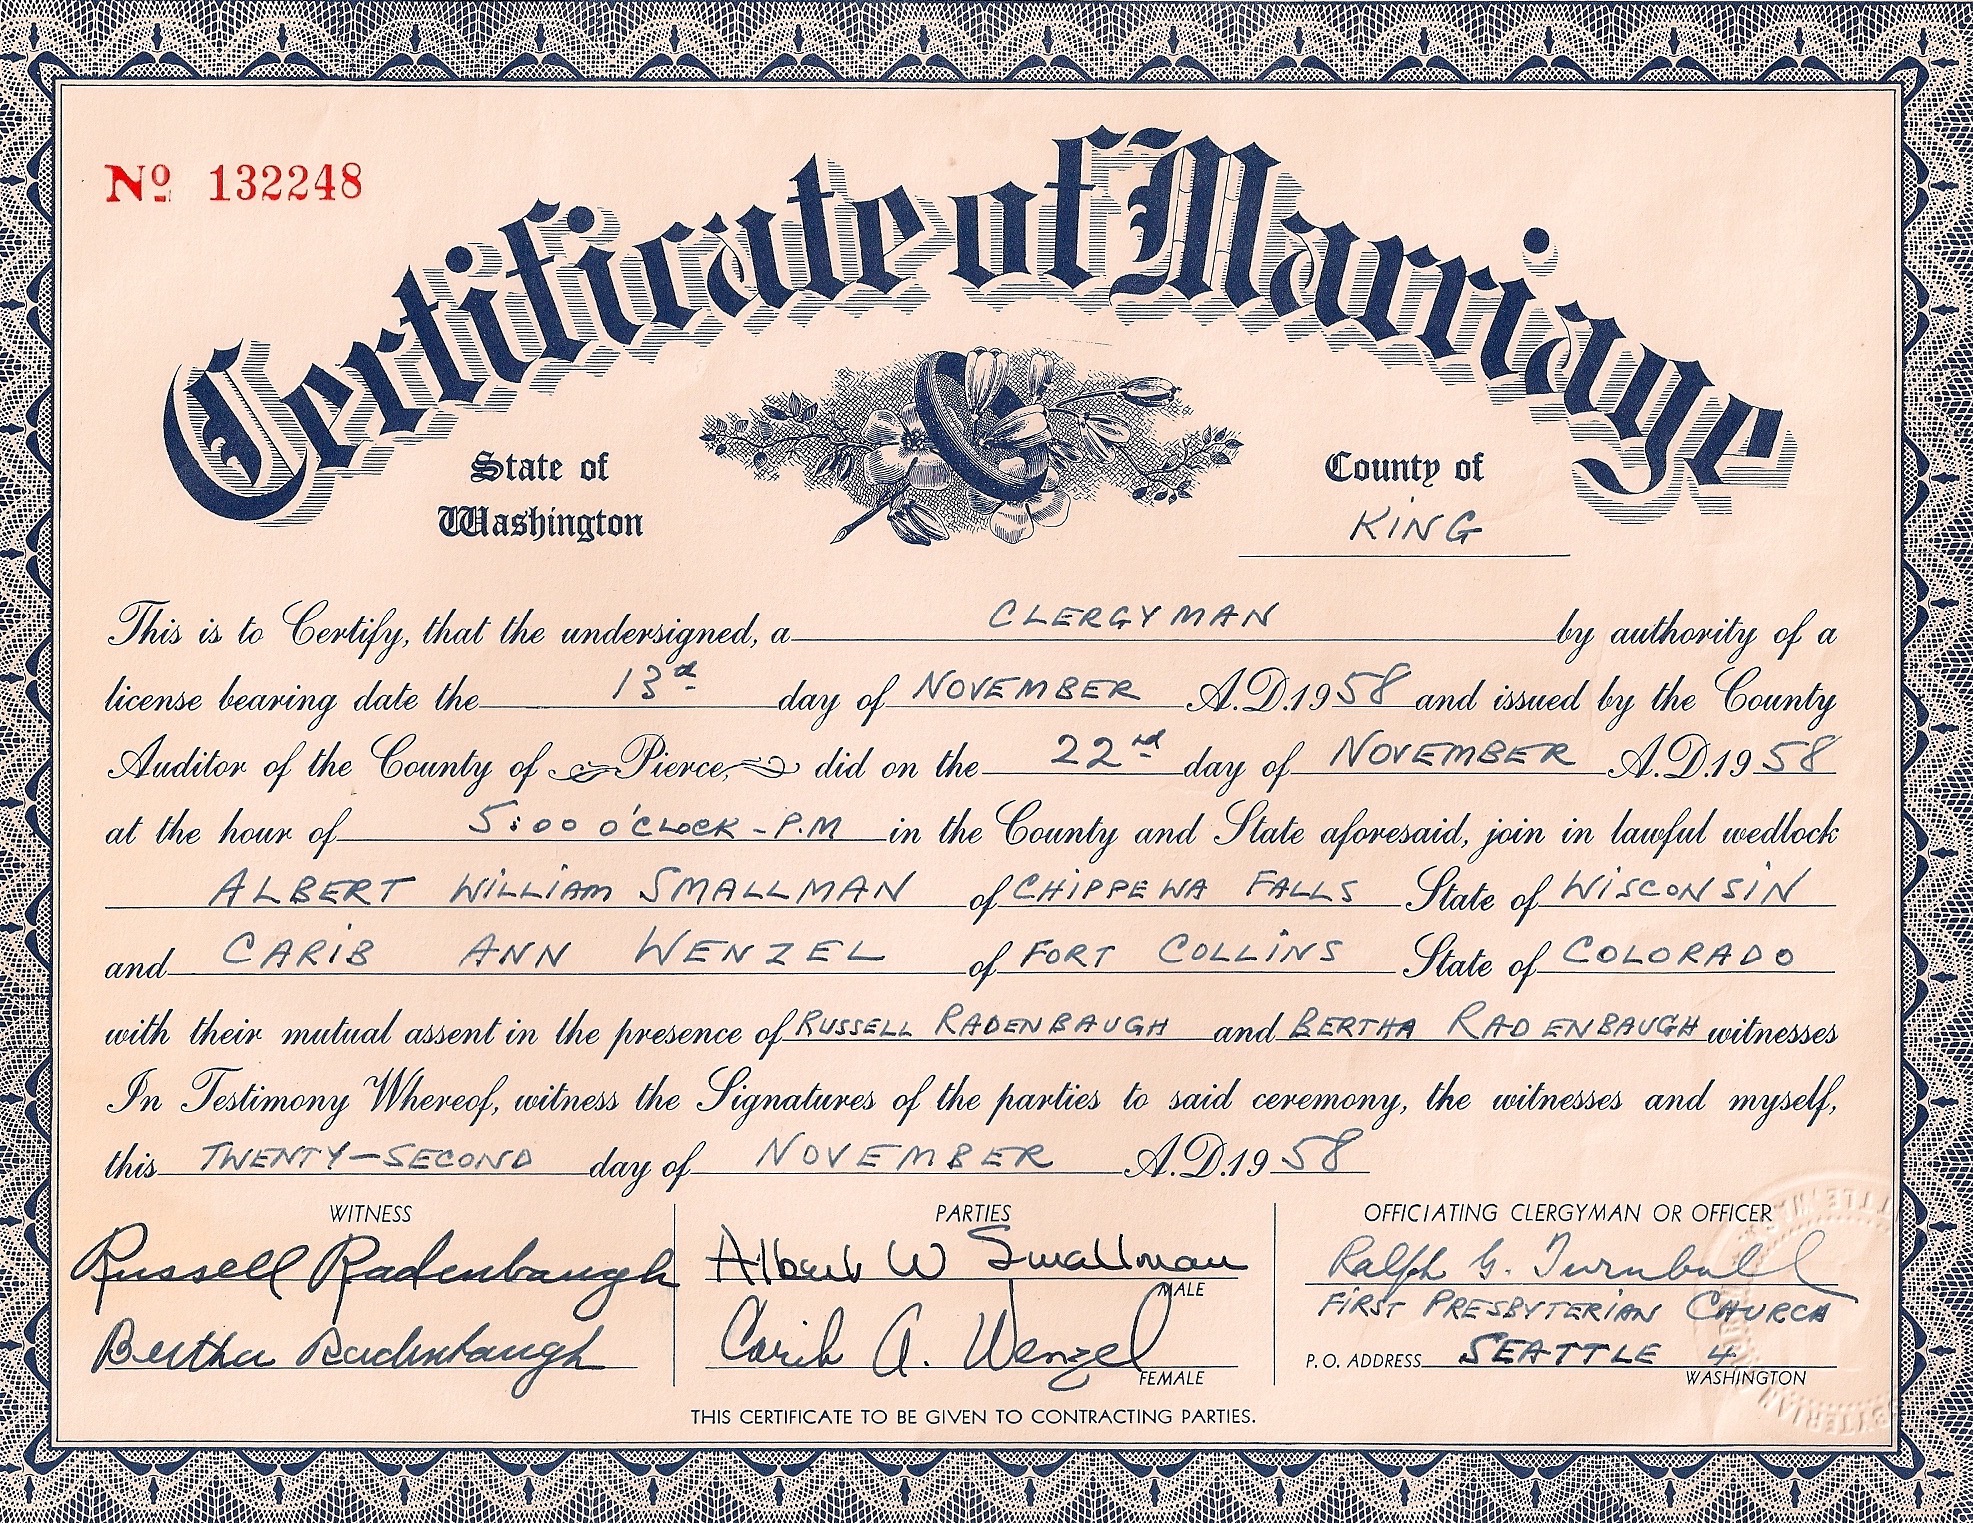 Nº 132248
Certificate of Marriage
State of
Washington
County of
KING
This is to Certify, that the undersigned, a CLERGYMAN by authority of a
license bearing date the 13th day of NOVEMBER A.D. 1958 and issued by the County
Auditor of the County of Pierce, did on the 22nd day of NOVEMBER A.D. 1958
at the hour of 5:00 O'CLOCK - P.M in the County and State aforesaid, join in lawful wedlock
ALBERT WILLIAM SMALLMAN of CHIPPEWA FALLS State of WISCONSIN
and CARIB ANN WENZEL of FORT COLLINS State of COLORADO
with their mutual assent in the presence of RUSSELL RADENBAUGH and BERTHA RADENBAUGH witnesses
In Testimony Whereof, witness the Signatures of the parties to said ceremony, the witnesses and myself,
this TWENTY-SECOND day of NOVEMBER A.D. 1958
WITNESS
Russell Radenbaugh
Bertha Radenbaugh
PARTIES
Albert W Smallman
MALE
Carib A. Wenzel
FEMALE
OFFICIATING CLERGYMAN OR OFFICER
Ralph G. Turnbull
FIRST PRESBYTERIAN CHURCH
P.O. ADDRESS SEATTLE 4
WASHINGTON
THIS CERTIFICATE TO BE GIVEN TO CONTRACTING PARTIES.